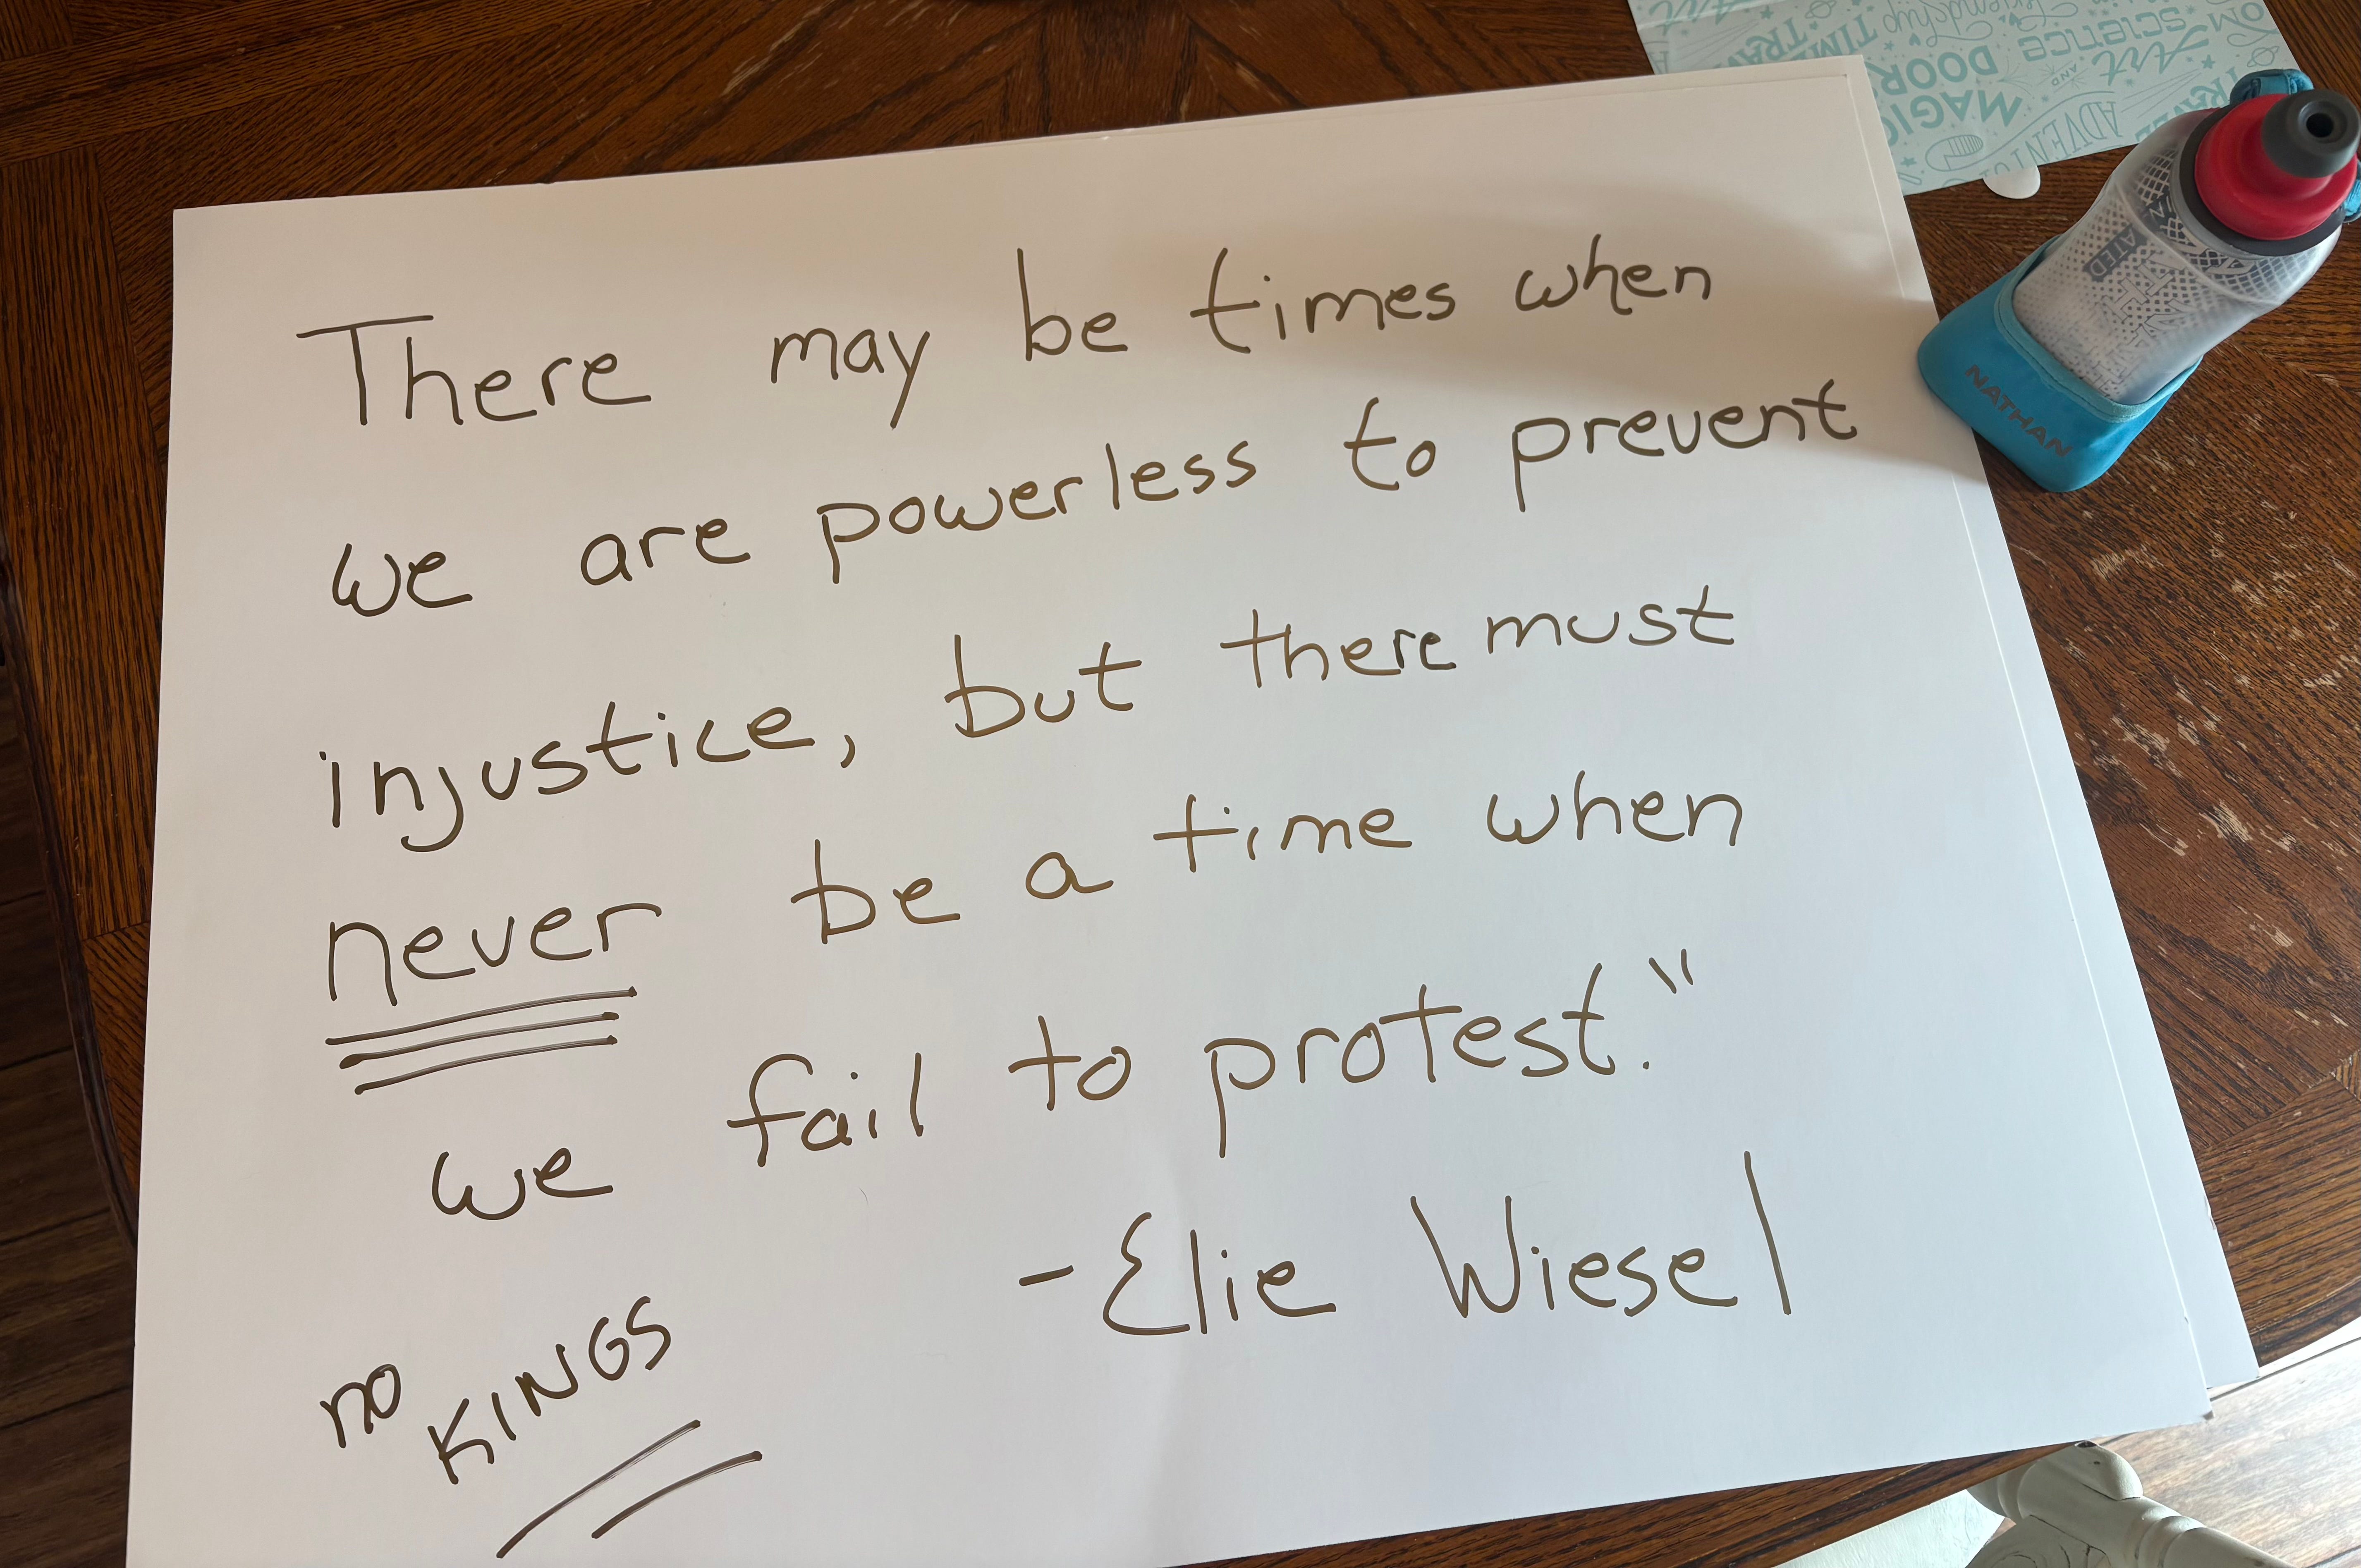 There may be times when
we are powerless to prevent
injustice, but there must
never be a time when
we fail to protest."
-Elie Wiesel
no KINGS
NATHAN
MAGIC
DOOR
TIME
TRA
SCIENCE
AND
art
friendship
ADVENTU